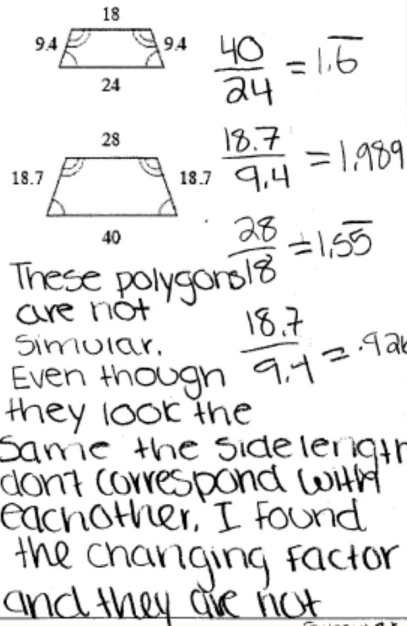 18
9.4 9.4
24
40/24 = 1.6̅
28
18.7 18.7
40
18.7/9.4 = 1.989
28/18 = 1.55̅
These polygons
are not
simular.
18.7/9.4 =
Even though
they look the
same the side length
dont correspond with
eachother. I found
the changing factor
and they are not